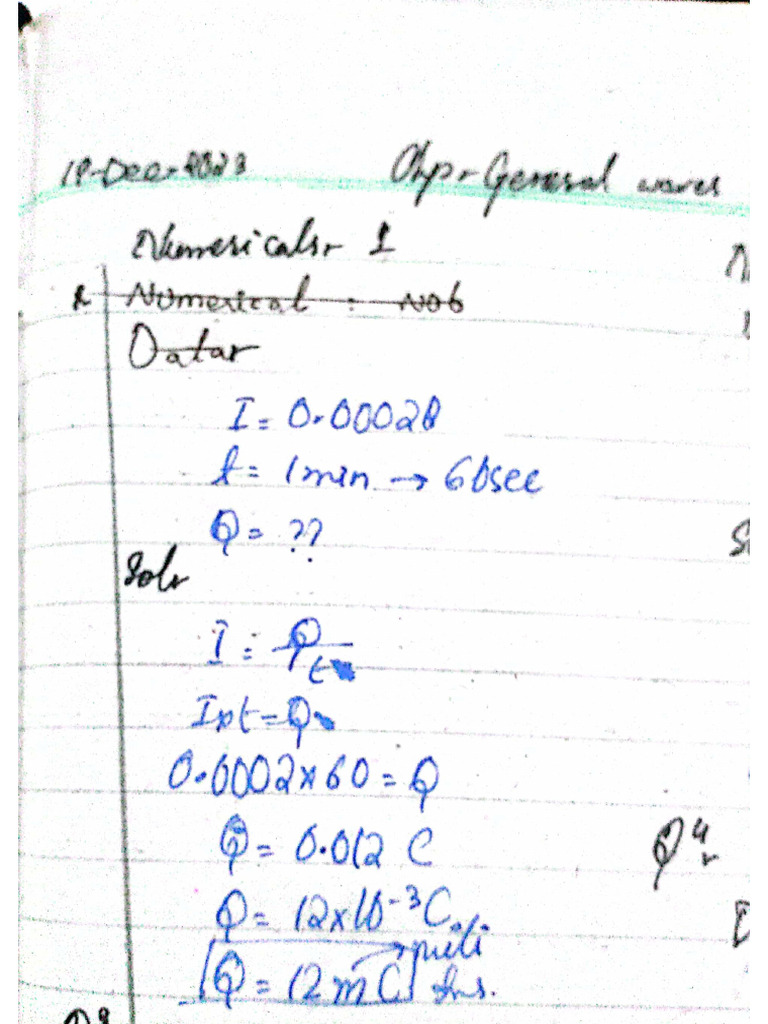 18-Dec-2023 Chp- General waves
Numericals- 1
Numerical : No 6
Data-
I = 0.0002A
t = 1min → 60sec
Q = ??
Sol-
I = Q/t
Ixt = Q
0.0002x60 = Q
Q = 0.012 C
Q = 12x10⁻³C.
mili
Q = 12mC Ans.
Q4-